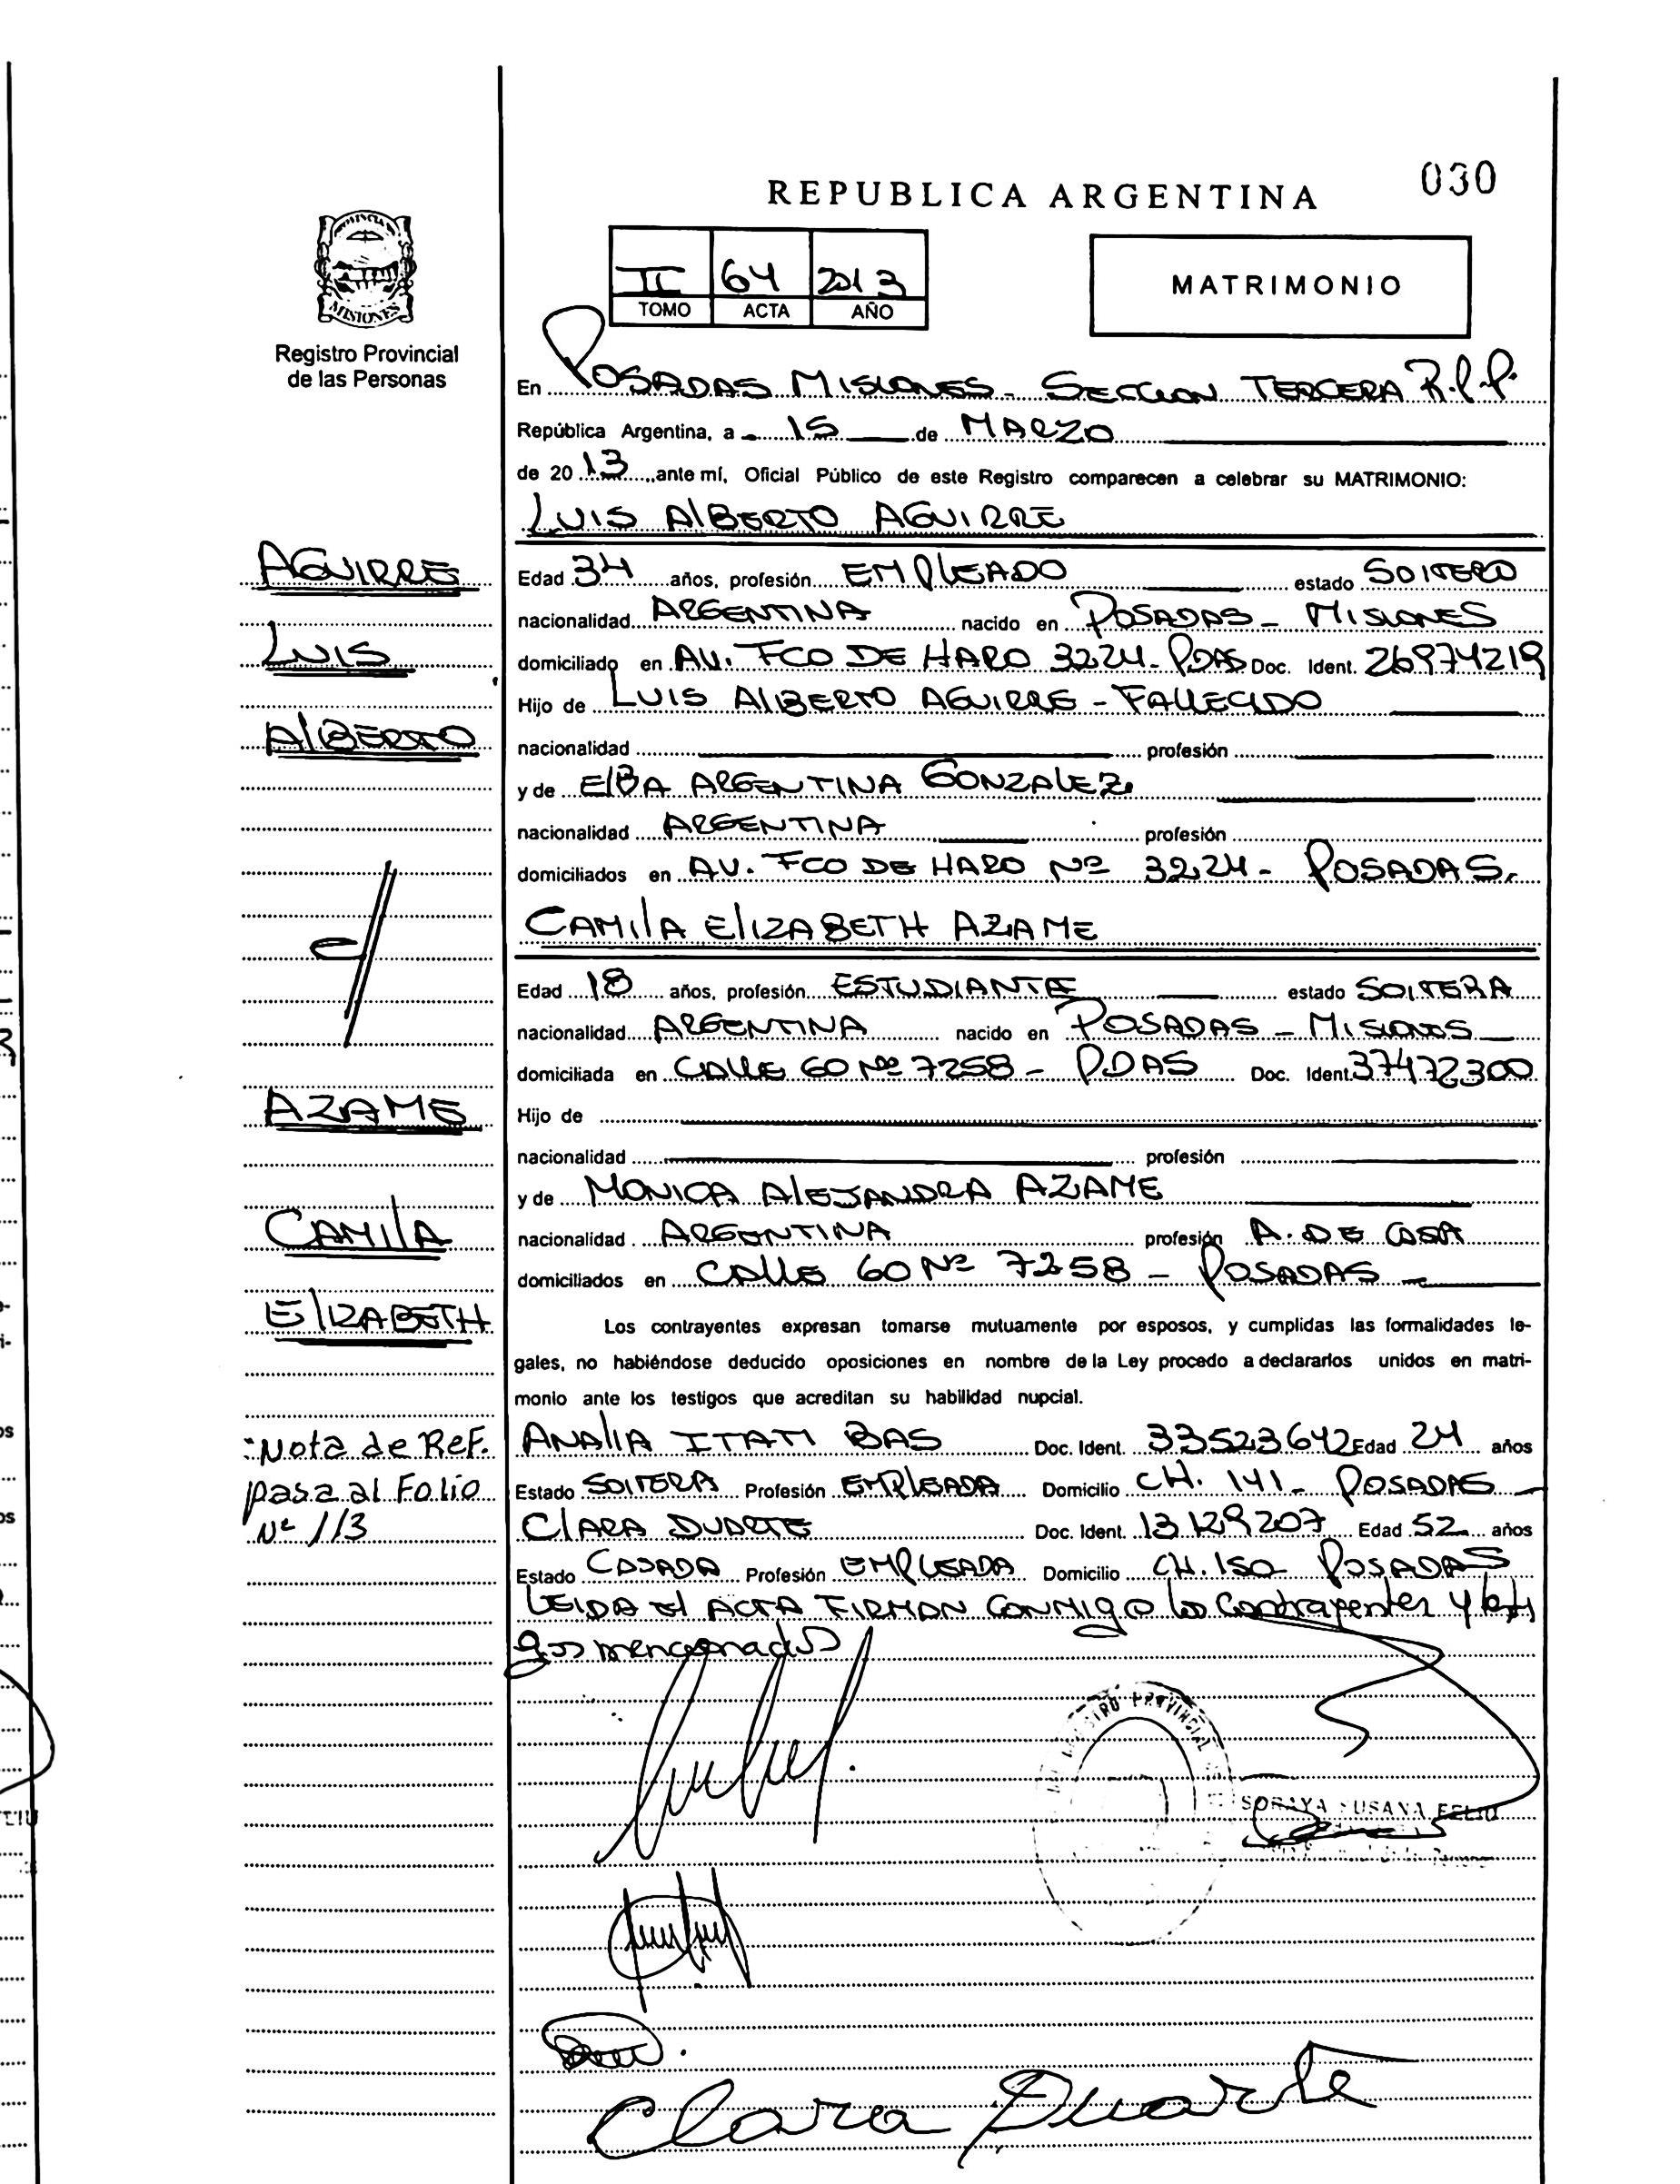 030
REPUBLICA ARGENTINA
PROVINCIA
MISIONES
Registro Provincial
de las Personas
II 64 2013
TOMO ACTA AÑO
MATRIMONIO
En POSADAS MISIONES - SECCION TERCERA R.P.P.
República Argentina, a 15 de MARZO
de 20 13 ante mí, Oficial Público de este Registro comparecen a celebrar su MATRIMONIO:
LUIS AlBERTO AGUIRRE
AGUIRRE
Edad 34 años, profesión EMPLEADO estado SOlTERO
nacionalidad ARGENTINA nacido en POSADAS - MISIONES
LUIS
domiciliado en AV. FCO DE HARO 3224 - PDAS Doc. Ident. 26974219
Hijo de LUIS AlBERTO AGUIRRE - FALLECIDO
AlBERTO
nacionalidad profesión
y de ElBA ARGENTINA GONZALEZ
nacionalidad ARGENTINA profesión
domiciliados en AV. FCO DE HARO Nº 3224 - POSADAS.
c//
CAMIlA ElIZABETH AZAME
Edad 18 años, profesión ESTUDIANTE estado SOlTERA
nacionalidad ARGENTINA nacido en POSADAS - MISIONES
domiciliada en CALLE 60 Nº 7258 - PDAS Doc. Ident. 37472300
AZAME
Hijo de
nacionalidad profesión
y de MONICA AlEJANDRA AZAME
CAMIlA
nacionalidad ARGENTINA profesión A. DE CASA
domiciliados en CALLE 60 Nº 7258 - POSADAS -
ElIZABETH
Los contrayentes expresan tomarse mutuamente por esposos, y cumplidas las formalidades le-
gales, no habiéndose deducido oposiciones en nombre de la Ley procedo a declararlos unidos en matri-
monio ante los testigos que acreditan su habilidad nupcial.
ANAlIA ITATI BAS Doc. Ident. 33523642 Edad 24 años
Nota de Ref.
pasa al Folio
Nº 113
Estado SOlTERA Profesión EMPLEADA Domicilio CH. 141 - POSADAS -
ClARA DUARTE Doc. Ident. 13129207 Edad 52 años
Estado CASADA Profesión EMPLEADA Domicilio CH. 150 POSADAS
LEIDA El ACTA FIRMAN CONMIGO los contrayentes y testi
gos mencionados
REGISTRO PROVINCIAL
SORAYA SUSANA FELIU
Clara Duarte